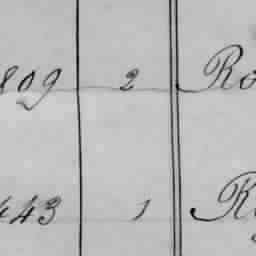 809 2 Ro
443 1 R